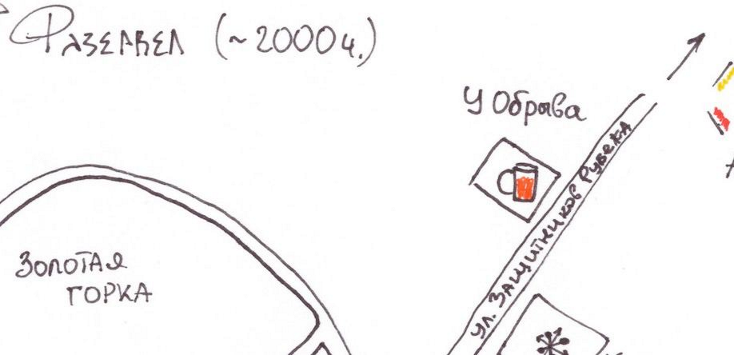 Фазервел (~2000ч.)
У Обрыва
ул. Защитников Рубежа
ЗОЛОТАЯ
ГОРКА